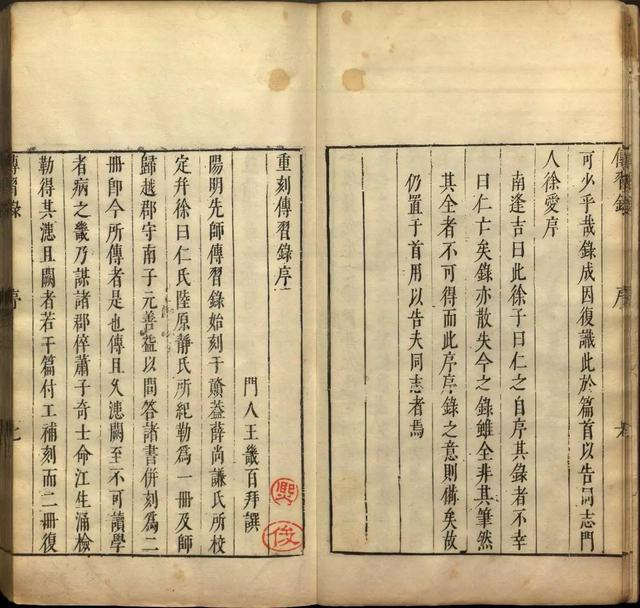 傳習錄
序
可少乎哉錄成因復識此於篇首以告同志門
人徐愛序
南逢吉曰此徐子曰仁之自序其錄者不幸
曰仁亡矣錄亦散失今之錄雖全非其筆然
其全者不可得而此序序錄之意則備矣故
仍置于首用以告夫同志者焉
重刻傳習錄序
門人王畿百拜譔
陽明先師傳習錄始刻于贑葢薛尚謙氏所校
定幷徐曰仁氏陸原靜氏所紀勒為一冊及師
歸越郡守南子元善益以問答諸書併刻為二
冊卽今所傳者是也傳且久漶闕至不可讀學
者病之畿乃謀諸郡倅蕭子奇士命江生涌檢
勒得其漶且闕者若干篇付工補刻而二冊復
傳習錄
序
七
俊